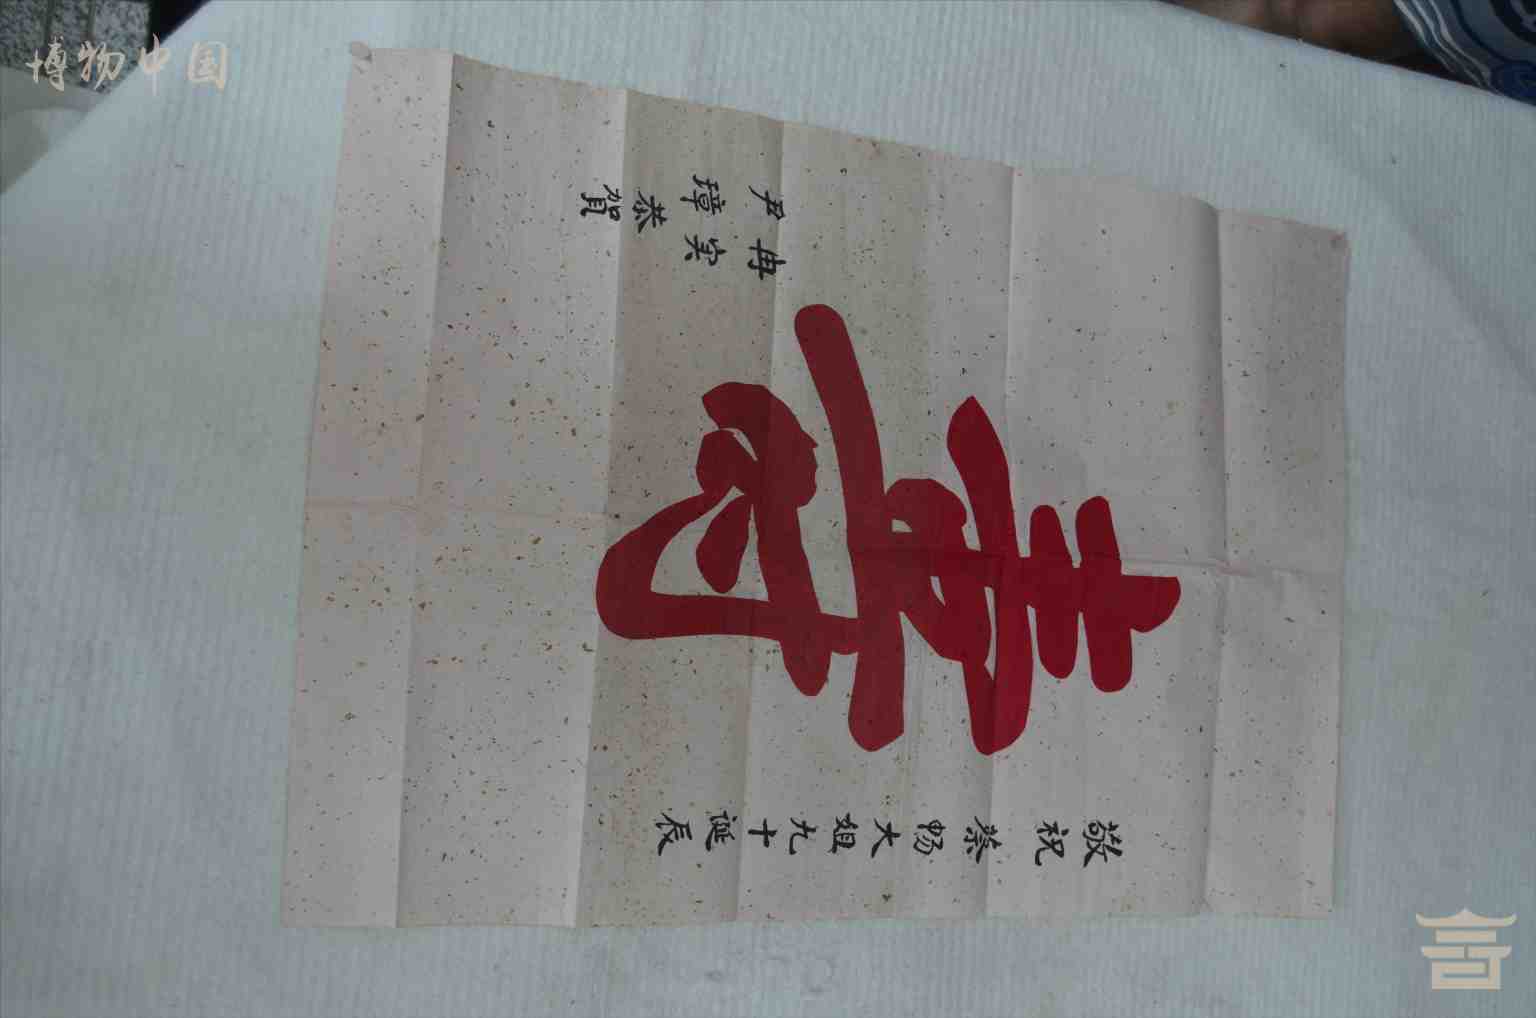 敬祝蔡畅大姐九十诞辰
壽
冉实
尹璋
恭賀
博物中国